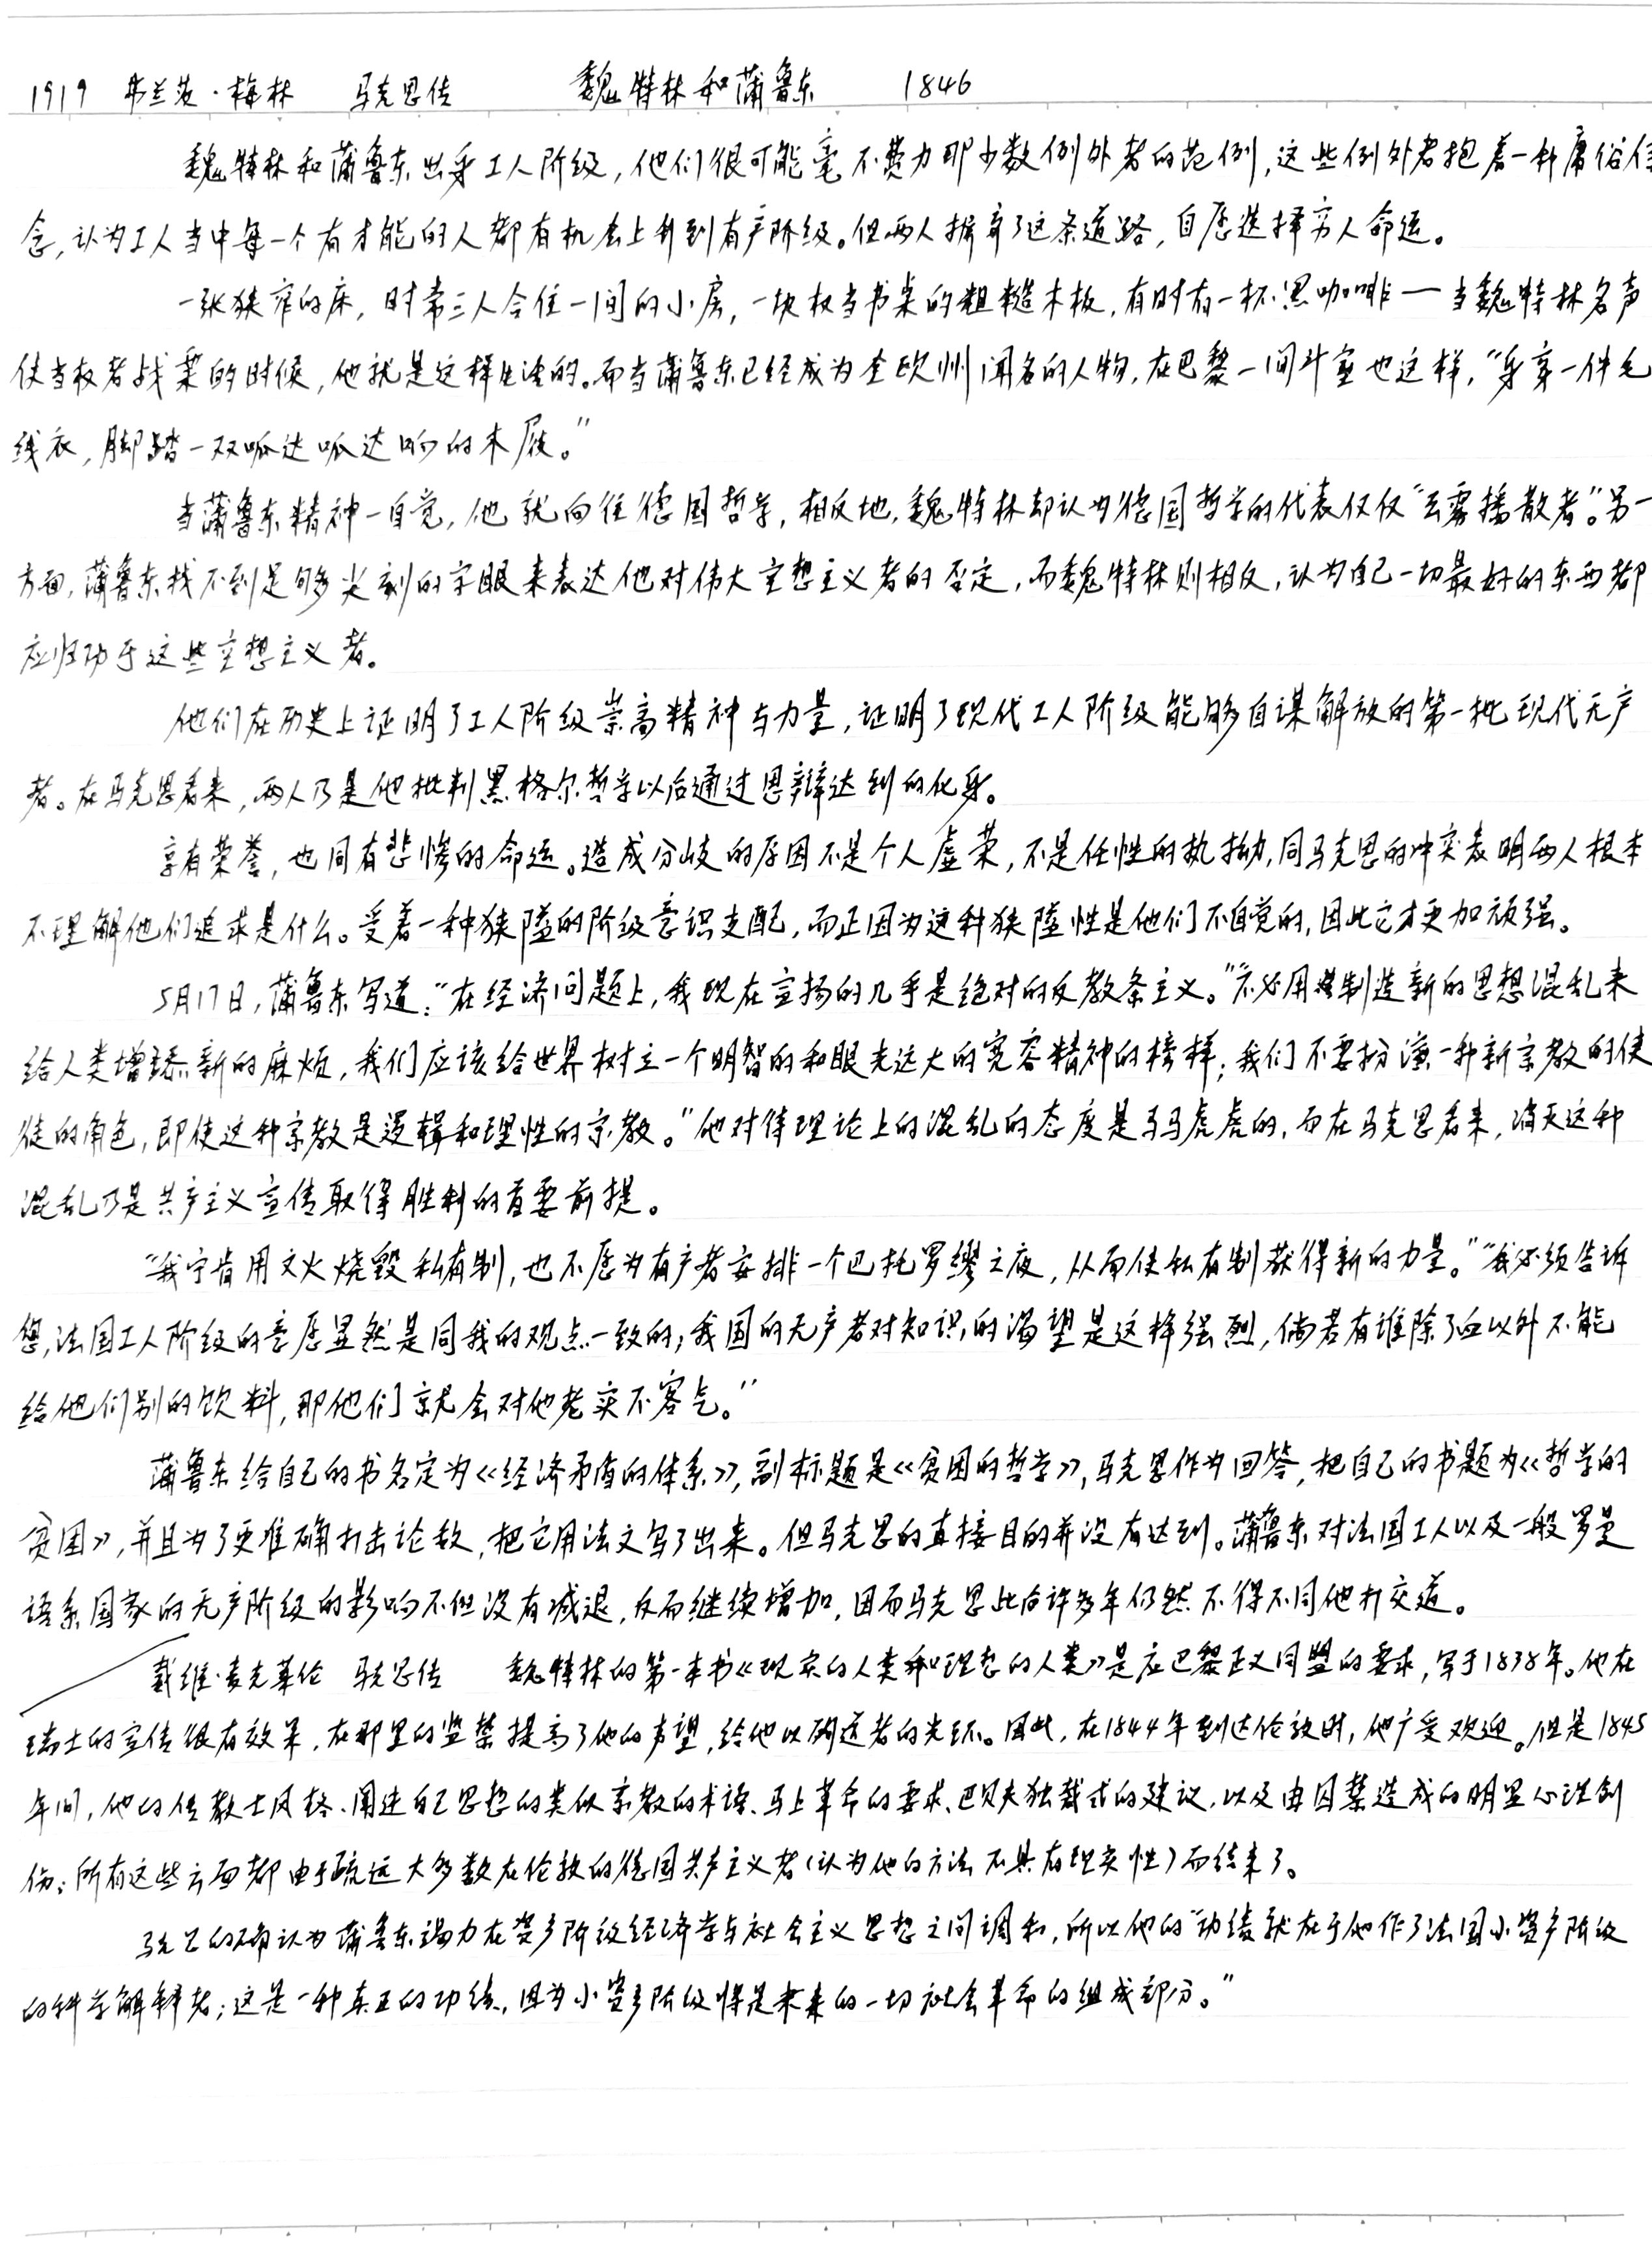 1919 弗兰茨·梅林 马克思传 魏特林和蒲鲁东 1846
魏特林和蒲鲁东出身工人阶级,他们很可能毫不费力那少数例外者的范例,这些例外者抱着一种庸俗信
念,认为工人当中每一个有才能的人都有机会上升到有产阶级。但两人摒弃了这条道路,自愿选择穷人命运。
一张狭窄的床,时常三人合住一间的小房,一块权当书桌的粗糙木板,有时有一杯黑咖啡一当魏特林名声
使当权者战栗的时候,他就是这样生活的。而当蒲鲁东已经成为全欧州闻名的人物,在巴黎一间斗室也这样,“身穿一件毛
线衣,脚踏一双呱达呱达响的木屐。”
当蒲鲁东精神一自觉,他就向往德国哲学,相反地,魏特林却认为德国哲学的代表仅仅“云雾播散者”。另一
方面,蒲鲁东找不到足够尖刻的字眼来表达他对伟大空想主义者的否定,而魏特林则相反,认为自己一切最好的东西都
应归功于这些空想主义者。
他们在历史上证明了工人阶级崇高精神与力量,证明了现代工人阶级能够自谋解放的第一批现代无产
者。在马克思看来,两人乃是他批判黑格尔哲学以后通过思辩达到的化身。
享有荣誉,也同有悲惨的命运。造成分岐的原因不是个人虚荣,不是任性的执拗,同马克思的冲突表明两人根本
不理解他们追求是什么。受着一种狭隘的阶级意识支配,而正因为这种狭隘性是他们不自觉的,因此它才更加顽强。
5月17日,蒲鲁东写道:“在经济问题上,我现在宣扬的几乎是绝对的反教条主义。”“不必用制造新的思想混乱来
给人类增添新的麻烦,我们应该给世界树立一个明智的和眼光远大的宽容精神的榜样;我们不要扮演一种新宗教的使
徒的角色,即使这种宗教是逻辑和理性的宗教。”他对待理论上的混乱的态度是马马虎虎的,而在马克思看来,消灭这种
混乱乃是共产主义宣传取得胜利的首要前提。
“我宁肯用文火烧毁私有制,也不愿为有产者安排一个巴托罗缪之夜,从而使私有制获得新的力量。”“我必须告诉
您,法国工人阶级的意愿显然是同我的观点一致的;我国的无产者对知识的渴望是这样强烈,倘若有谁除了血以外不能
给他们别的饮料,那他们就会对他老实不客气。”
蒲鲁东给自己的书名定为《经济矛盾的体系》,副标题是《贫困的哲学》,马克思作为回答,把自己的书题为《哲学的
贫困》,并且为了更准确打击论敌,把它用法文写了出来。但马克思的直接目的并没有达到。蒲鲁东对法国工人以及一般罗曼
语系国家的无产阶级的影响不但没有减退,反而继续增加,因而马克思此后许多年仍然不得不同他打交道。
戴维·麦克莱伦 马克思传 魏特林的第一本书《现实的人类和理想的人类》是应巴黎正义同盟的要求,写于1838年。他在
瑞士的宣传很有效果,在那里的监禁提高了他的声望,给他以殉道者的光环。因此,在1844年到达伦敦时,他广受欢迎。但是1845
年间,他的传教士风格、阐述自己思想的类似宗教的术语、马上革命的要求、巴贝夫独裁式的建议,以及由囚禁造成的明显心理创
伤:所有这些方面都由于疏远大多数在伦敦的德国共产主义者(认为他的方法不具有现实性)而结束了。
马克思的确认为蒲鲁东竭力在资产阶级经济学与社会主义思想之间调和,所以他的“功绩就在于他作了法国小资产阶级
的科学解释者;这是一种真正的功绩,因为小资产阶级将是未来的一切社会革命的组成部分。”